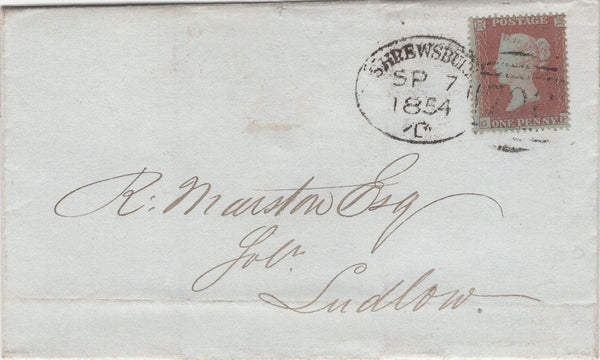 POSTAGE
SHREWSBU
SP 7
1854
D
ONE PENNY
G
R: Marston Esq
Solr.
Ludlow.